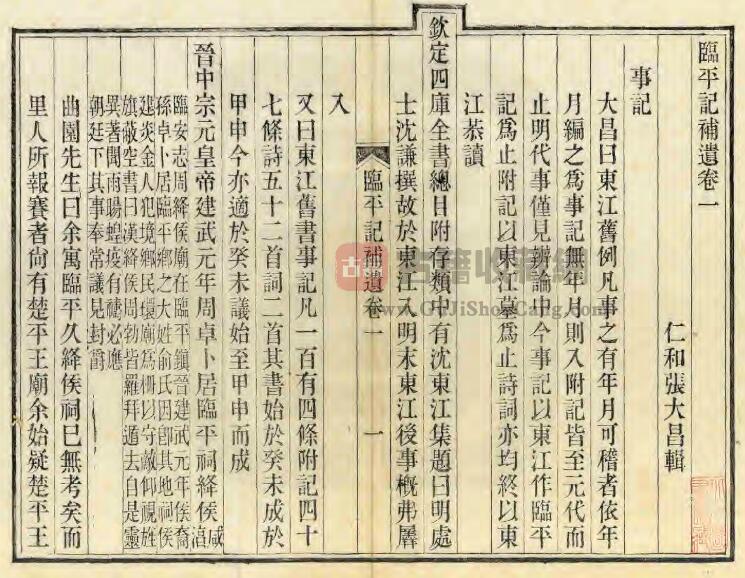 臨平記補遺卷一
仁和張大昌輯
事記
大昌曰東江舊例凡事之有年月可稽者依年
月編之爲事記無年月則入附記皆至元代而
止明代事僅見辨論中今事記以東江作臨平
記爲止附記以東江墓爲止詩詞亦均終以東
江恭讀
欽定四庫全書總目附存類中有沈東江集題曰明處
士沈謙撰故於東江入明末東江後事概弗羼
臨平記補遺卷一
一
入
又曰東江舊書事記凡一百有四條附記四十
七條詩五十二首詞二首其書始於癸未成於
甲申今亦適於癸未議始至甲申而成
晉中宗元皇帝建武元年周卓卜居臨平祠絳侯
咸淳
臨安志周絳侯廟在臨平鎮晉建武元年侯裔
孫卓卜居臨平鄉之大姓俞氏因卽其地祠侯
建炎金人犯境鄉民環廟爲柵以守敵仰視旌
旗蔽空書曰漢絳侯周勃皆羅拜遁去自是靈
異著聞雨暘蝗疫有禱必應
朝廷下其事奉常議見封爵
曲園先生曰余寓臨平久絳侯祠已無考矣而
里人所報賽者尙有楚平王廟余始疑楚平王
古籍收藏網
www.GuJiShouCang.com